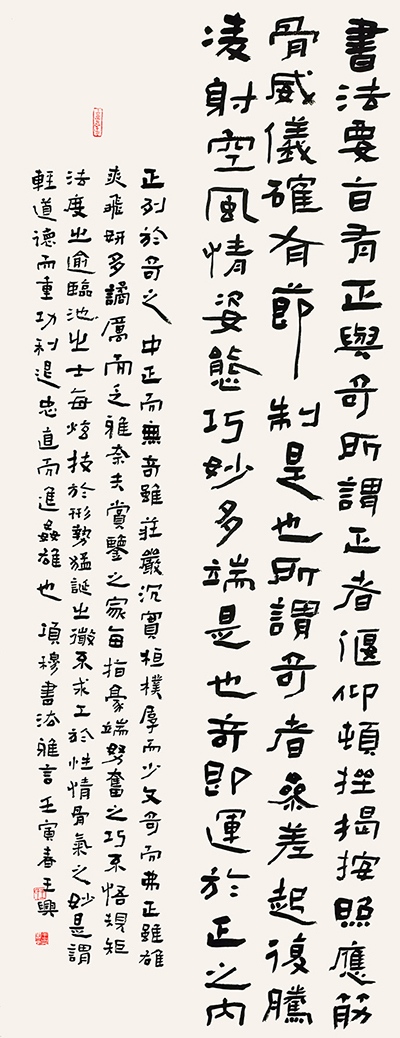 書法要旨有正與奇所謂正者偃仰頓挫揭按照應筋
骨威儀確有節制是也所謂奇者參差起復騰
凌射空風情姿態巧妙多端是也奇即運於正之內
正列於奇之中正而無奇雖莊嚴沉實恒樸厚而少文奇而弗正雖雄
爽飛妍多譎厲而乏雅奈夫賞鑒之家每指毫端努奮之巧不悟規矩
法度之逾臨池之士每炫技於形勢猛誕之微不求工於性情骨氣之妙是謂
輕道德而重功利退忠直而進姦雄也 項穆書法雅言壬寅春王興